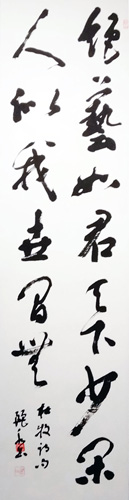 絶藝如君天下少閑
人似我世間無
杜牧詩句